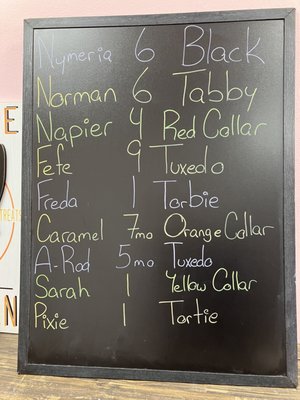 Nymeria 6 Black
Norman 6 Tabby
Napier 4 Red Collar
Fefe 9 Tuxedo
Freda 1 Torbie
Caramel 7mo Orange Collar
A-Rod 5mo Tuxedo
Sarah 1 Yellow Collar
Pixie 1 Tortie
E
TREATS
N